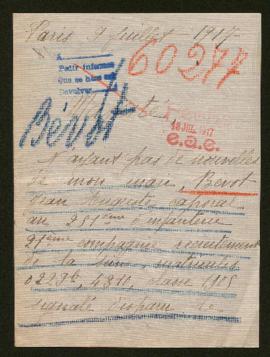 Paris 9 Juillet 1917
A
Pedir informes
Que se hace
Devolver
60277
Bévot
18 JUL. 1917
e.a.e.
N'ayant pas de nouvelles
de mon mari, Bevot
Jean Auguste caporal
au 255ème infanterie
25ème compagnie recrutement
de la Seine, matricules
classe 1905
Signalé disparu